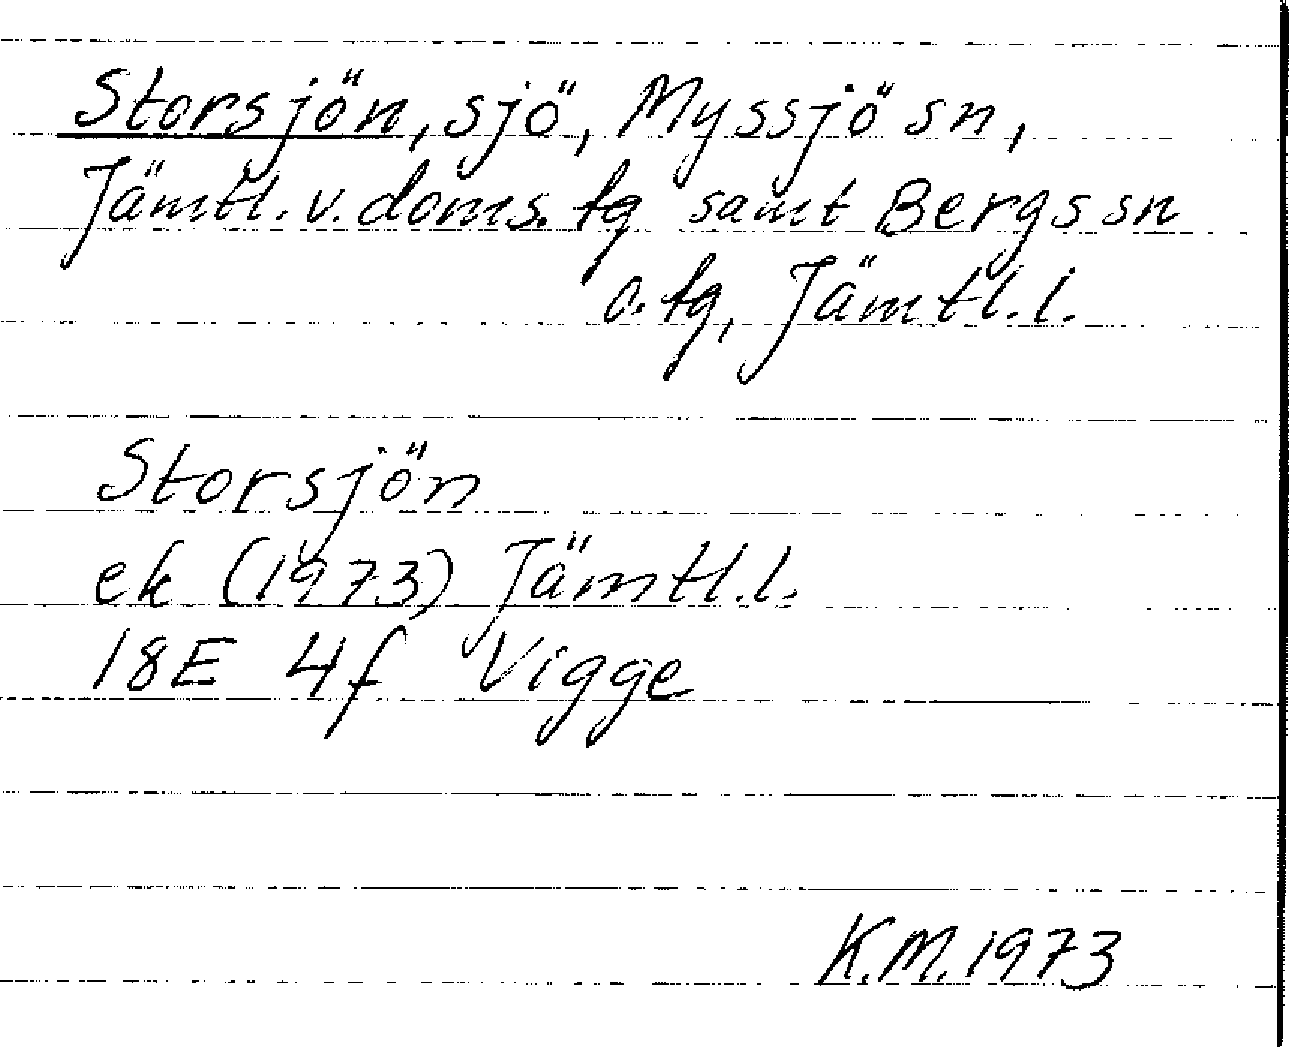 Storsjön, sjö, Myssjö sn,
Jämtl. v. doms. tg samt Bergs sn
o. tg, Jämtl. l.
Storsjön
ek (1973) Jämtl. l.
18E 4f Vigge
K.M. 1973